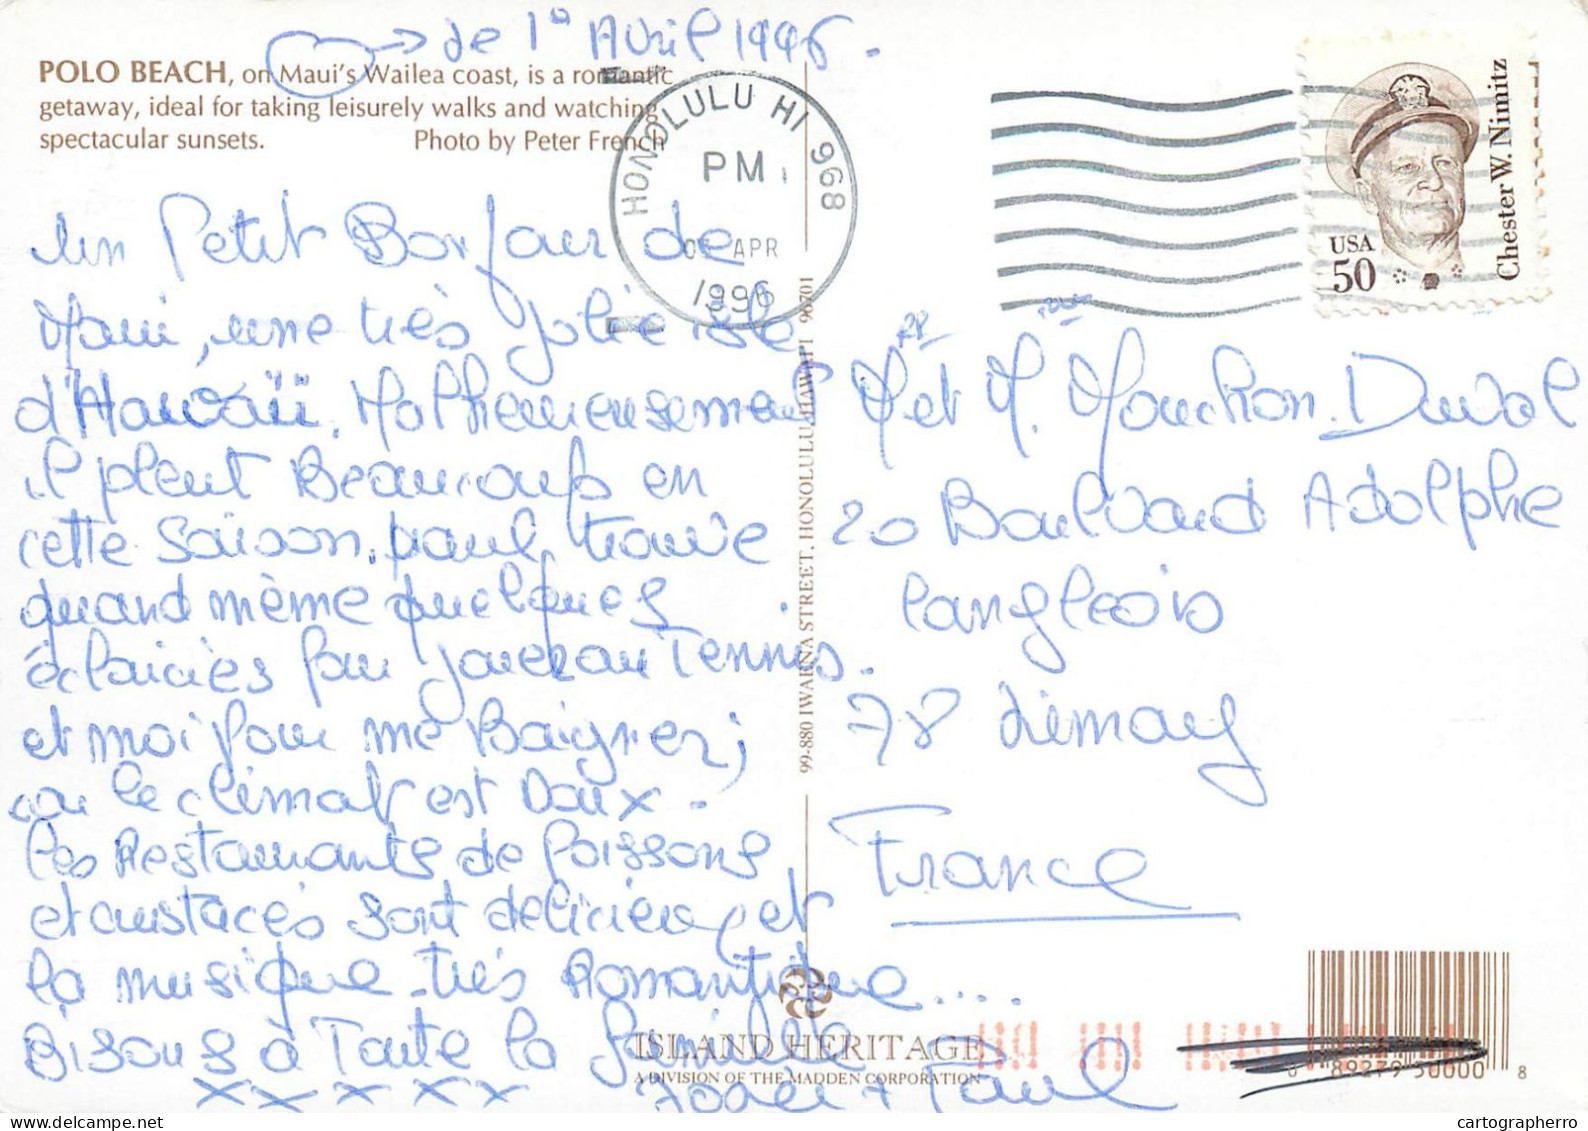 de 1° Avril 1996.
POLO BEACH, on Maui's Wailea coast, is a romantic
getaway, ideal for taking leisurely walks and watching
spectacular sunsets. Photo by Peter French
HONOLULU HI 968
PM
APR
1996
USA
50
Chester W. Nimitz
Un Petit Bonjour de
Maui, une très Jolie isle
d'Hawaii. Malheureusement
il pleut Beaucoup en
cette Saison. paul trouve
quand même quelques
éclaicies pour Jouer au Tennis.
et moi pour me Baigner;
car le climat est Doux.
Les Restaurants de Poissons
et crustacés sont delicieux et
la musique très Romantique....
Bisous à Toute la famille
xxxxx
+ Paul
99-880 IWAENA STREET, HONOLULU, HAWAI'I 96701
M et M. Mouchon. Duval
20 Boulevard Adolphe
Langlois
78 Limay
France
ISLAND HERITAGE
A DIVISION OF THE MADDEN CORPORATION
50000 8
cartographerro